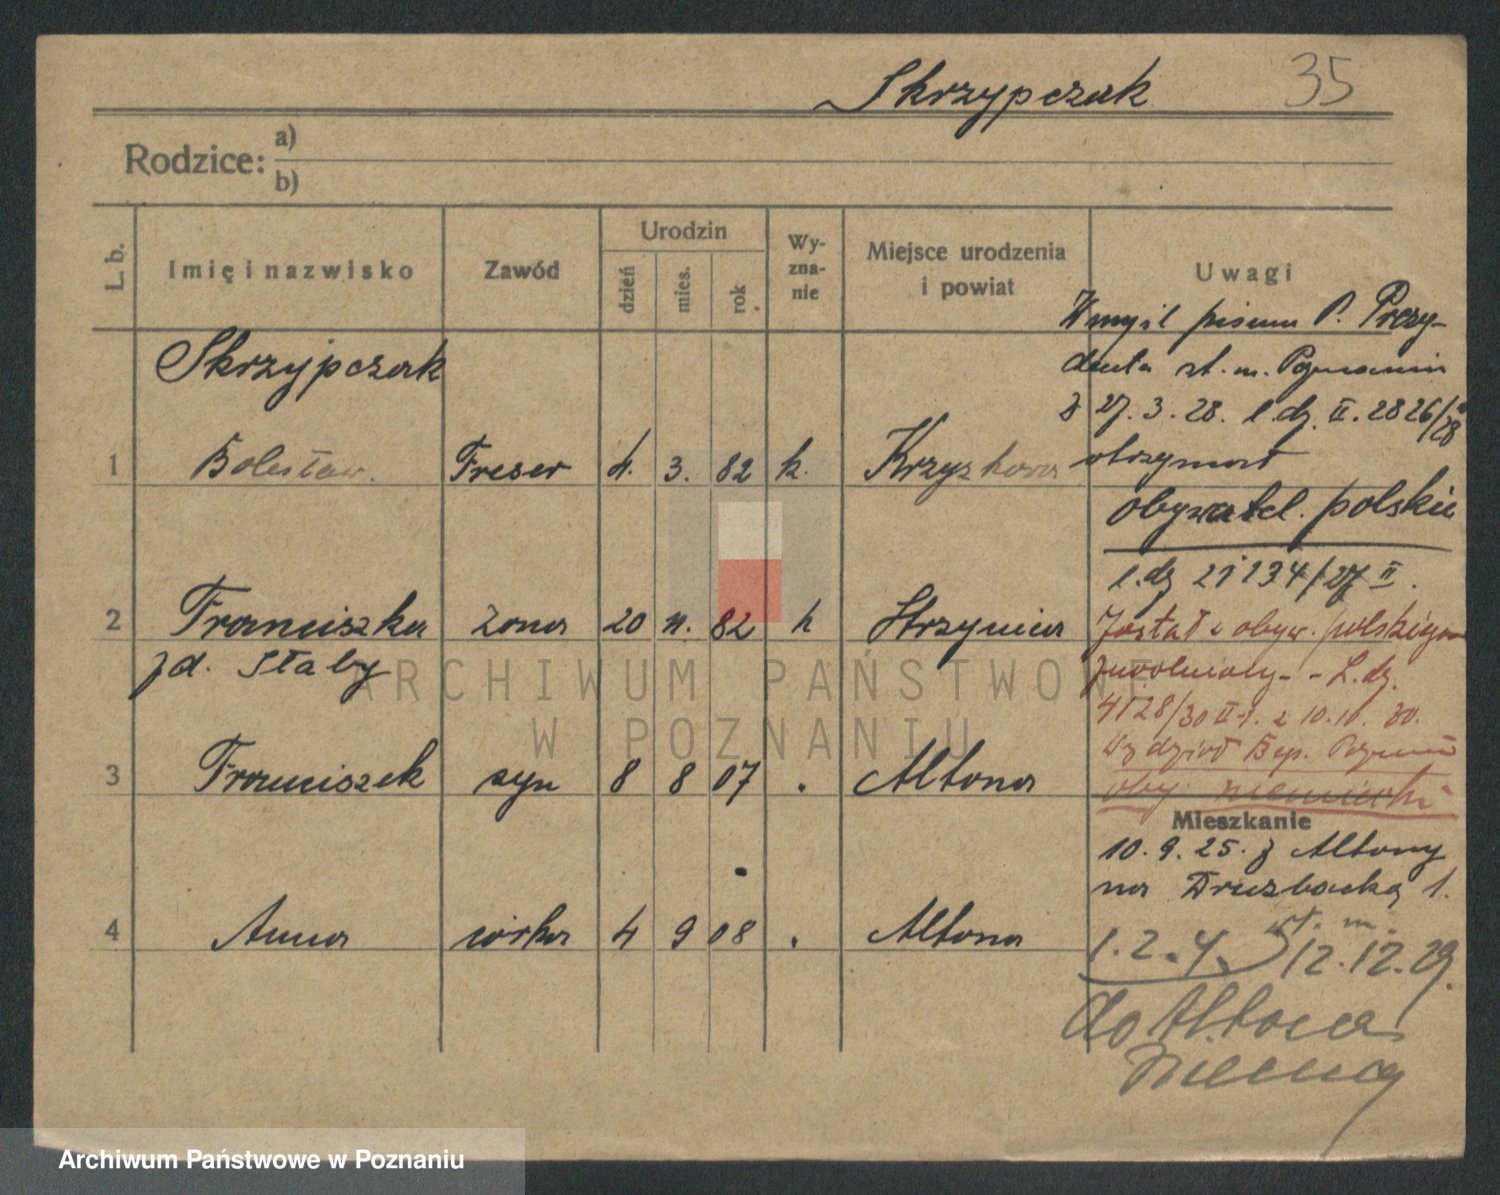 Skrzypczak 35
Rodzice:
a)
b)
L. b.
Imię i nazwisko
Zawód
Urodzin
dzień
mies.
rok
Wy-
zna-
nie
Miejsce urodzenia
i powiat
Uwagi
W myśl pisma P. Prezy-
denta st. m. Poznania
z 27. 3. 28. l dz. II. 2826/28
otrzymał
obywatel. polskie
l. dz 21234/27 II.
Został z obyw. polskiego
zwolniony - L. dz.
4128/30 II-1. z 10. 10. 30.
obyw. niemiecki
Skrzypczak
1 Bolesław. Freser 4. 3. 82 k. Krzyszkowo
2 Franciszka żona 20 11. 82 k
zd. Słaby
3 Franciszek syn 8 8 07 . Altona
4 Anna córka 4 9 08 . Altona
Mieszkanie
10. 9. 25. z Altony
na Drużbacka 1.
st. m.
1. 2. 4. 12. 12. 29.
do Altona
Niemcy
ARCHIWUM PAŃSTWOWE
W POZNANIU
Archiwum Państwowe w Poznaniu